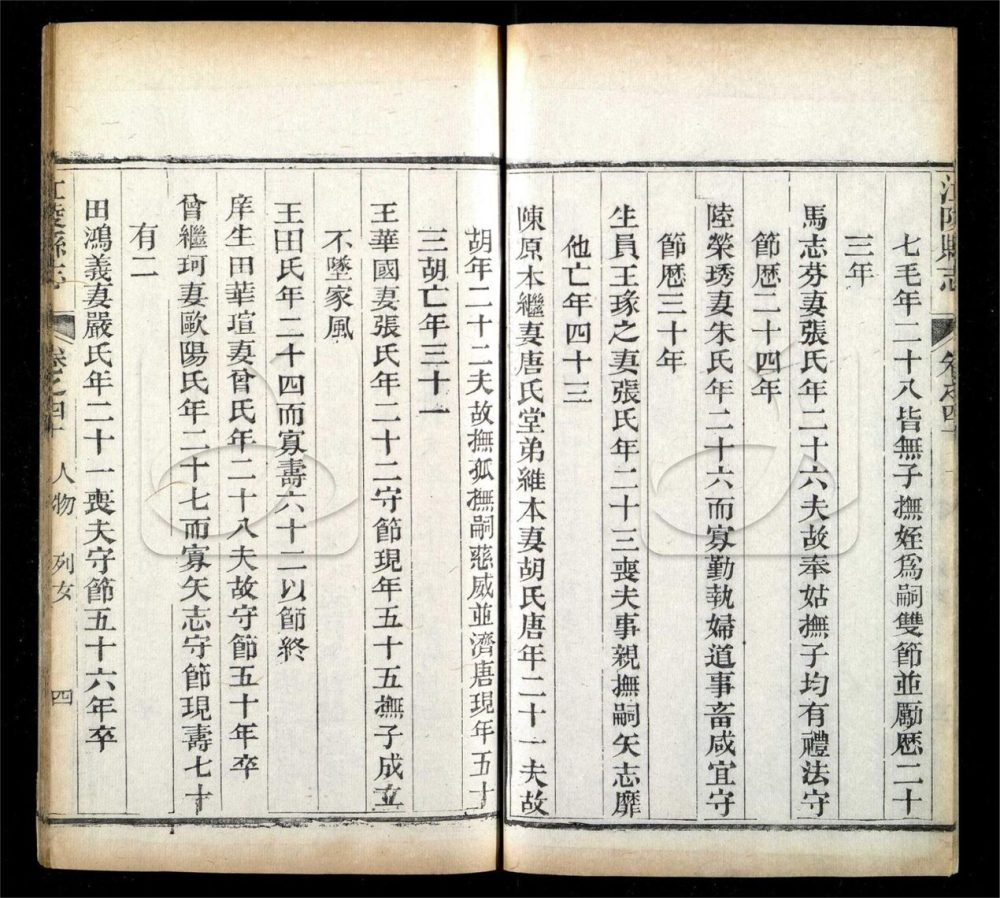 江陵縣志
卷之四十
七毛年二十八皆無子撫姪為嗣雙節並勵歷二十
三年
馬志芬妻張氏年二十六夫故奉姑撫子均有禮法守
節歷二十四年
陸榮琇妻朱氏年二十六而寡勤執婦道事畜咸宜守
節歷三十年
生員王瑑之妻張氏年二十三喪夫事親撫嗣矢志靡
他亡年四十三
陳原本繼妻唐氏堂弟維本妻胡氏唐年二十一夫故
胡年二十二夫故撫孤撫嗣慈威並濟唐現年五十
三胡亡年三十一
王華國妻張氏年二十二守節現年五十五撫子成立
不墜家風
王田氏年二十四而寡壽六十二以節終
庠生田華瑄妻曾氏年二十八夫故守節五十年卒
曾繼珂妻歐陽氏年二十七而寡矢志守節現壽七十
有二
田鴻義妻嚴氏年二十一喪夫守節五十六年卒
江陵縣志
卷之四十
人物
列女
四